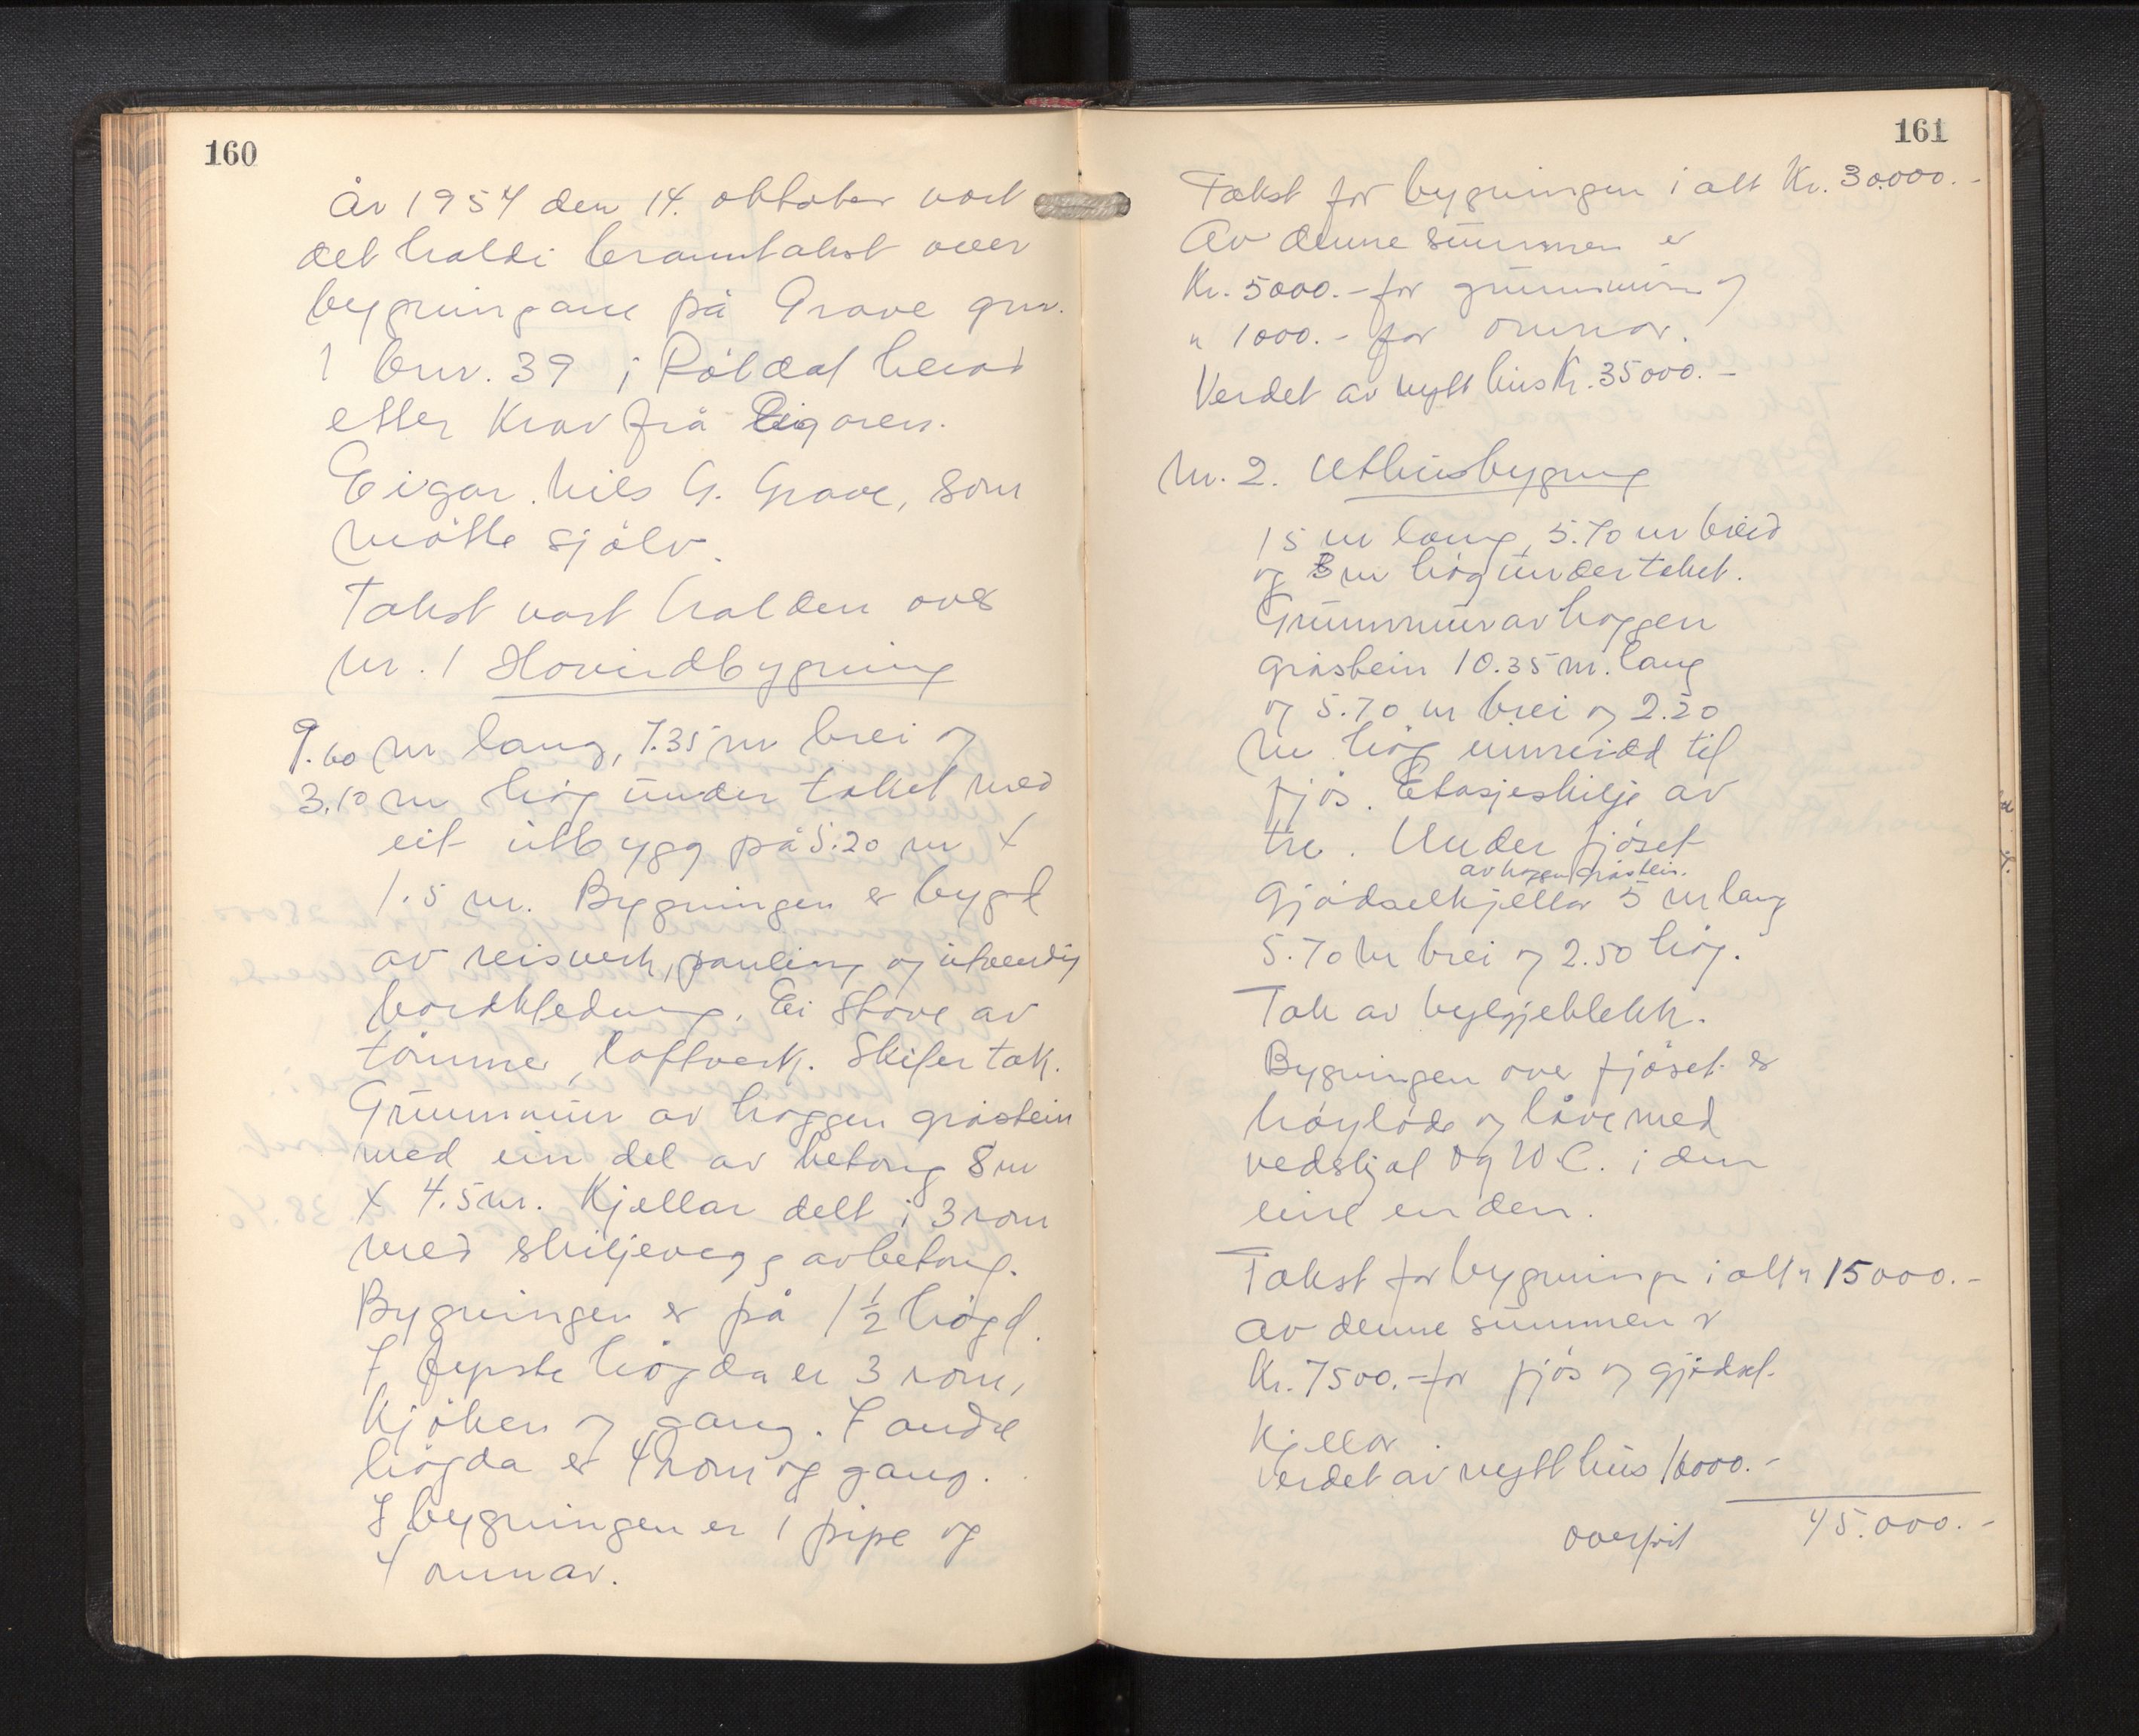 160
År 1954 den 14. oktober vart
det haldi branntakst over
bygningane på Grave gnr.
1 bnr. 39 i Röldal herad
etter Krav frå Eigaren.
Eigar Nils G. Grave, som
møtte sjölv.
Takst vart halden over
Nr. 1 Hovudbygning
9.60 m lang, 7.35 m brei og
3.10 m høg under taket med
eit utbygg på 5.20 m x
1.5 m. Bygningen er bygd
av reisverk, paneling og utvendig
bordkledning. Ei Stove av
tömmer, loftverk. Skifer tak.
Grunnmur av hoggen gråstein
med ein del av betong 8 m
x 4.5 m. Kjellar delt i 3 rom
med skiljevegg av betong.
Bygningen er på 1 1/2 högd.
I fyrste högda er 3 rom,
Kjöken og gang. I andre
högda er 4 rom og gang.
I bygningen er 1 pipe og
4 omnar.
161
Takst for bygningen i alt Kr. 30.000.-
Av denne summen er
Kr. 5000.- for grunnmur og
" 1000.- for omnar.
Verdet av nytt hus Kr. 35000.-
Nr. 2. Uthusbygning
15 m lang, 5.70 m breid
og 3 m høg under taket.
Grunnmur av hoggen
gråstein 10.35 m. lang
og 5.70 m brei og 2.20
m høg innreidd til
fjøs. Etasjeskilje av
tre. Under fjøset
av hoggen gråstein.
Gjødselkjellar 5 m lang
5.70 m brei og 2.50 høg.
Tak av bylgjeblekk.
Bygningen over fjøset er
høyløde og låve med
vedskjal og W.C. i den
eine enden.
Takst for bygningen i alt " 15000.-
Av denne summen er
Kr. 7500.- for fjøs og gjødsel-
Kjellar.
Verdet av nytt hus 16000.-
overført 45.000.-